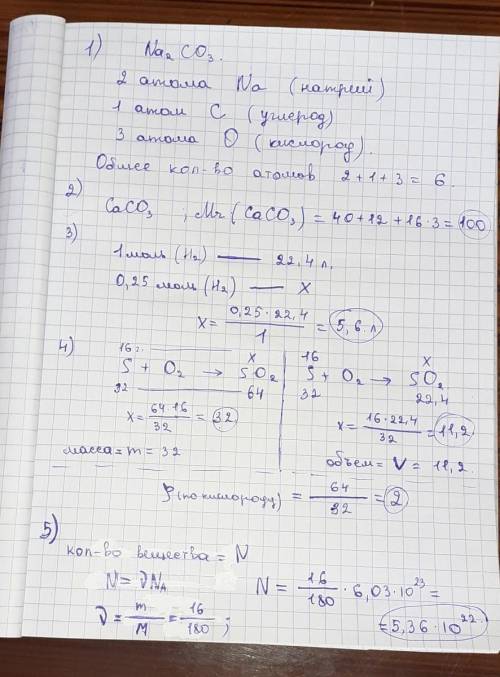 1) Na₂CO₃.
2 атома Na (натрий)
1 атом C (углерод)
3 атома O (кислород).
Общее кол-во атомов 2+1+3 = 6.
2) CaCO₃ ; Mr(CaCO₃) = 40+12+16·3 = 100
3)
1 моль (H₂) — 22,4 л.
0,25 моль (H₂) — X
X = 0,25·22,4 / 1 = 5,6 л
4)
16 г. X
S + O₂ → SO₂
32 64
X = 64·16 / 32 = 32
масса = m = 32
16 X
S + O₂ → SO₂
32 22,4
X = 16·22,4 / 32 = 11,2
объем = V = 11,2
ρ(по кислороду) = 64 / 32 = 2
5)
кол-во вещества = N
N = νNA
ν = m / M = 16 / 180 ;
N = 16 / 180 · 6,03·10²³ =
= 5,36·10²²